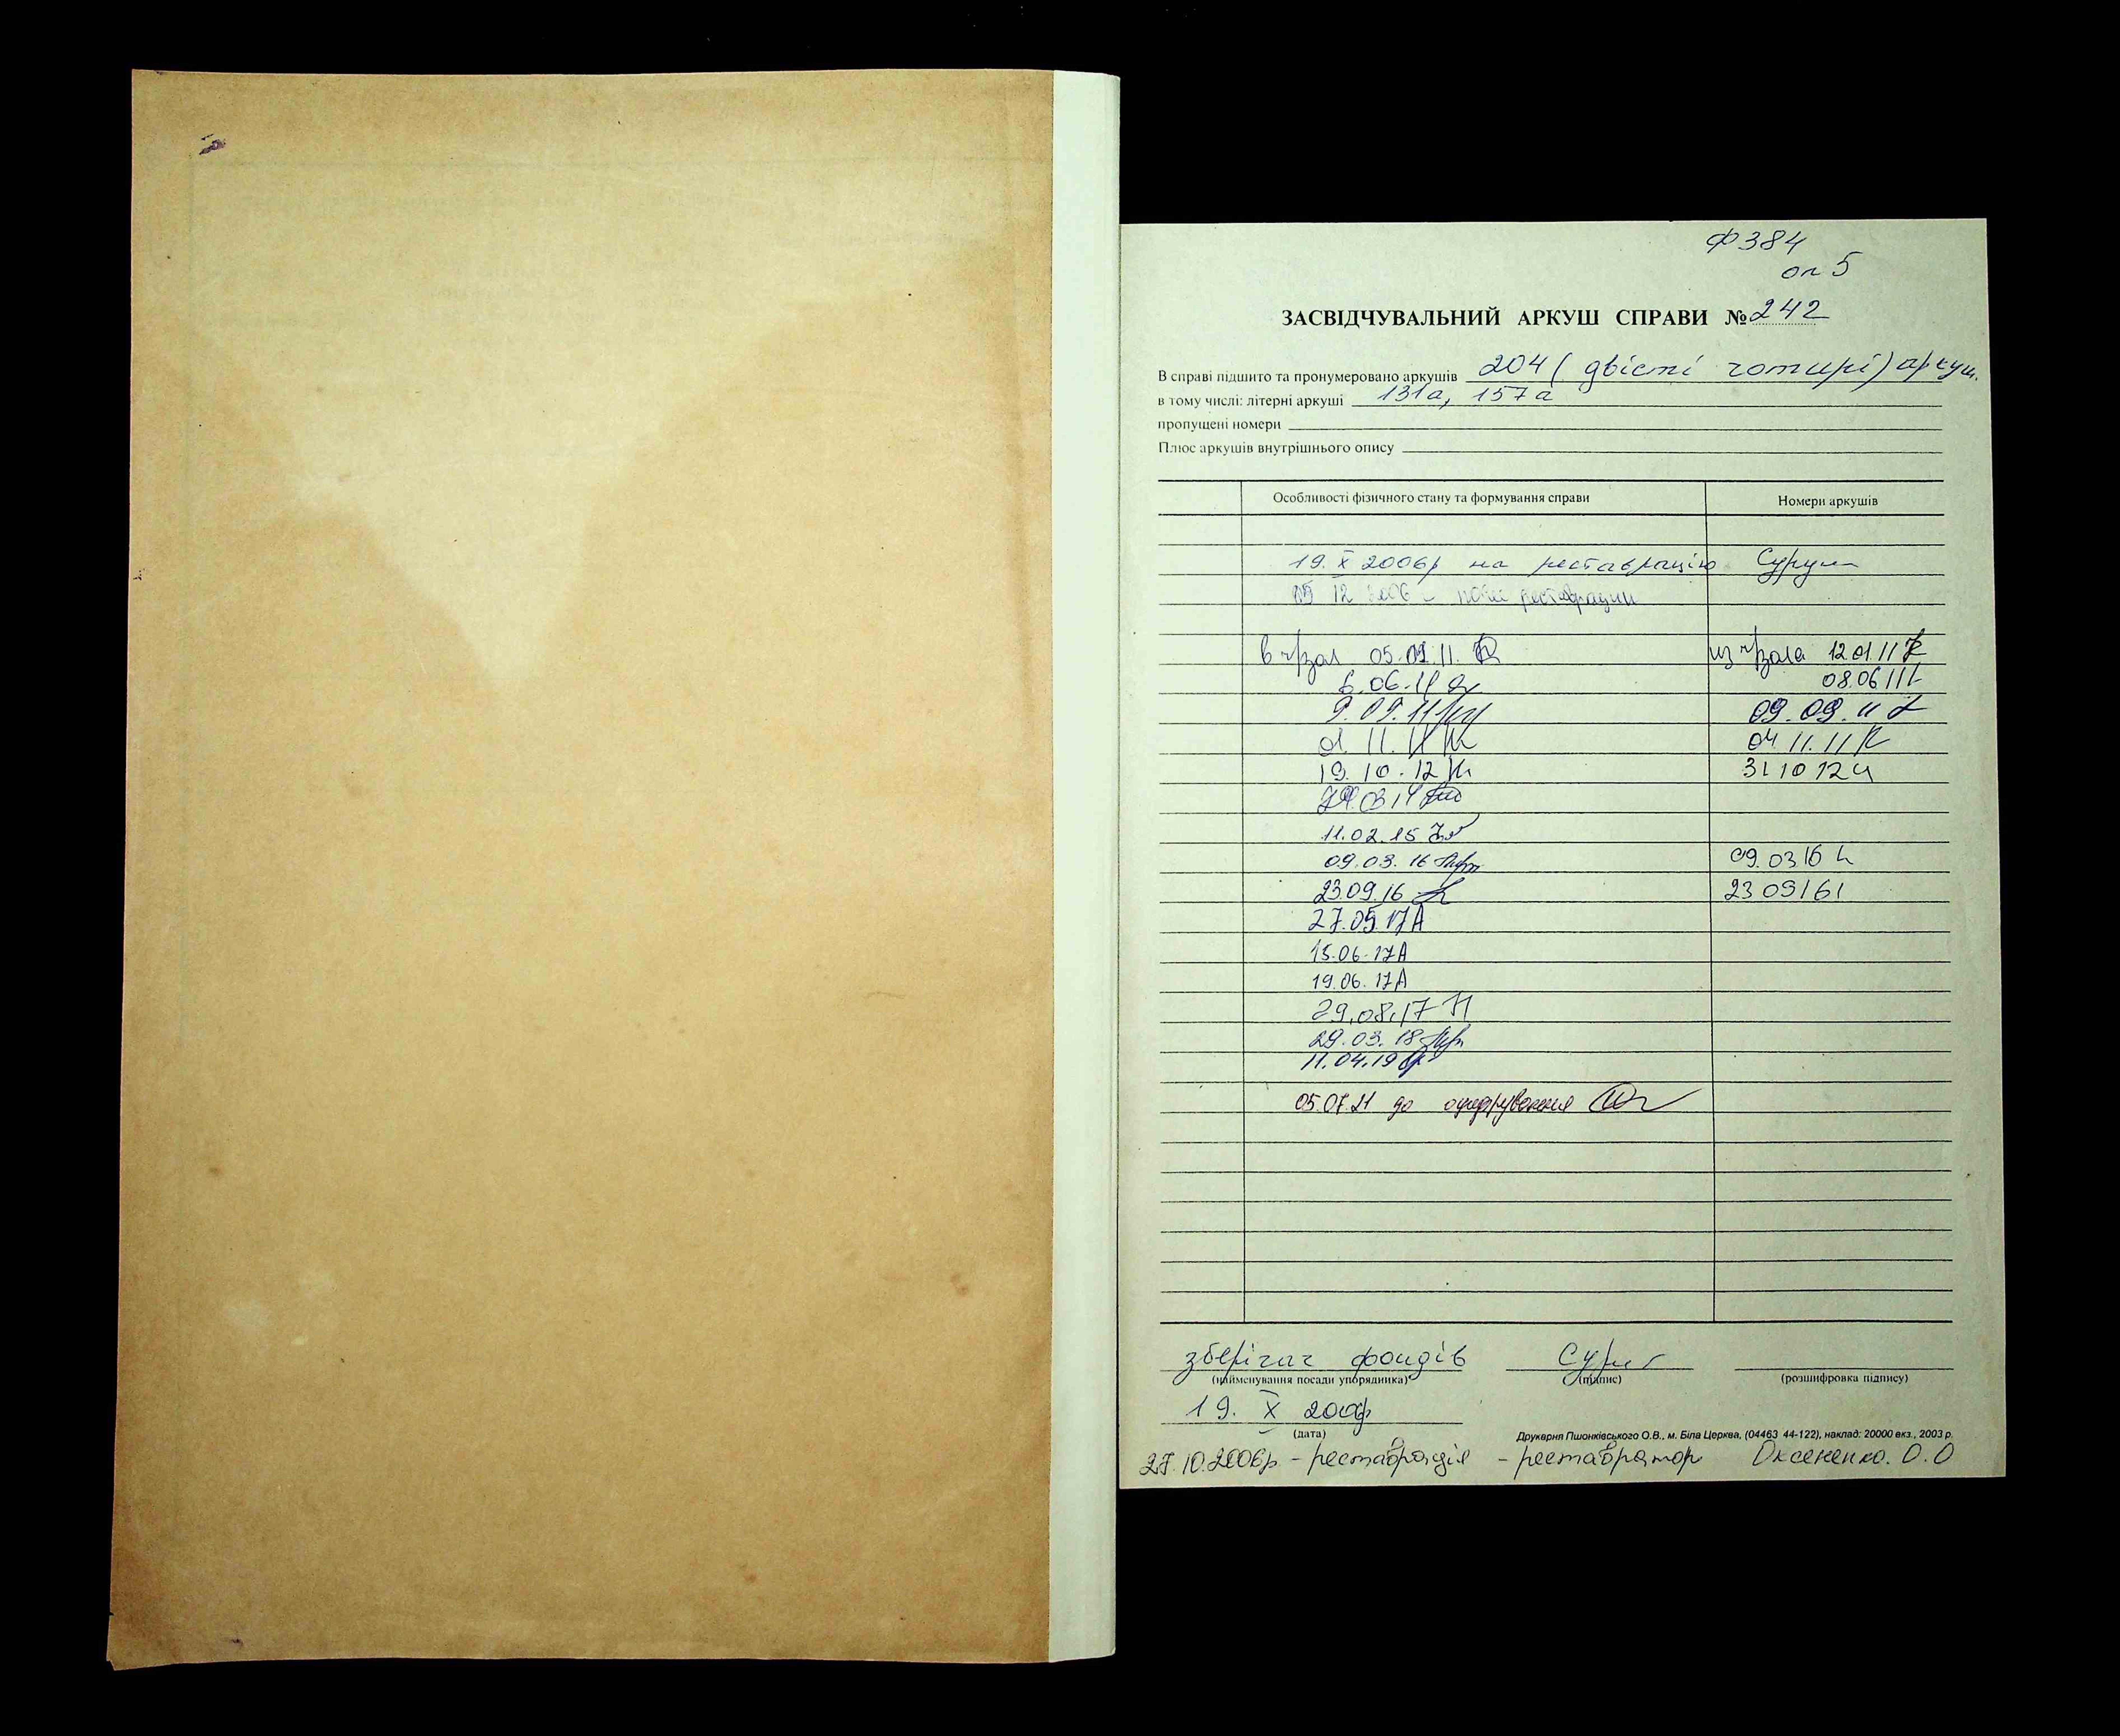 ф 384
оп 5
ЗАСВІДЧУВАЛЬНИЙ АРКУШ СПРАВИ № 242
В справі підшито та пронумеровано аркушів 204 (двісті чотирі) аркуш.
в тому числі: літерні аркуші 131а, 157а
пропущені номери
Плюс аркушів внутрішнього опису
Особливості фізичного стану та формування справи Номери аркушів
19. X 2006р на реставрацію
05 12 2006 – після реставрации
в ч/зал 05.01.11. из ч/зала 12.01.11
6.06.11 08.06.11
9.09.11 09.09.11
01.11.11 04.11.11
19.10.12 31 10 12
03 14
11.02.15
09.03.16 09.03 16
23.09.16 23 09 16
27.05.17 А
15.06.17 А
19.06.17 А
29.08.17
29.03.18
11.04.19
05.07.21 до оцифрування
зберігач фондів
(найменування посади упорядника) (підпис) (розшифровка підпису)
19. X 2006р
(дата)
Друкарня Пшонківського О.В., м. Біла Церква, (04463 44-122), наклад: 20000 екз., 2003 р.
27.10.2006р – реставрація – реставратор Оксененко. О.О